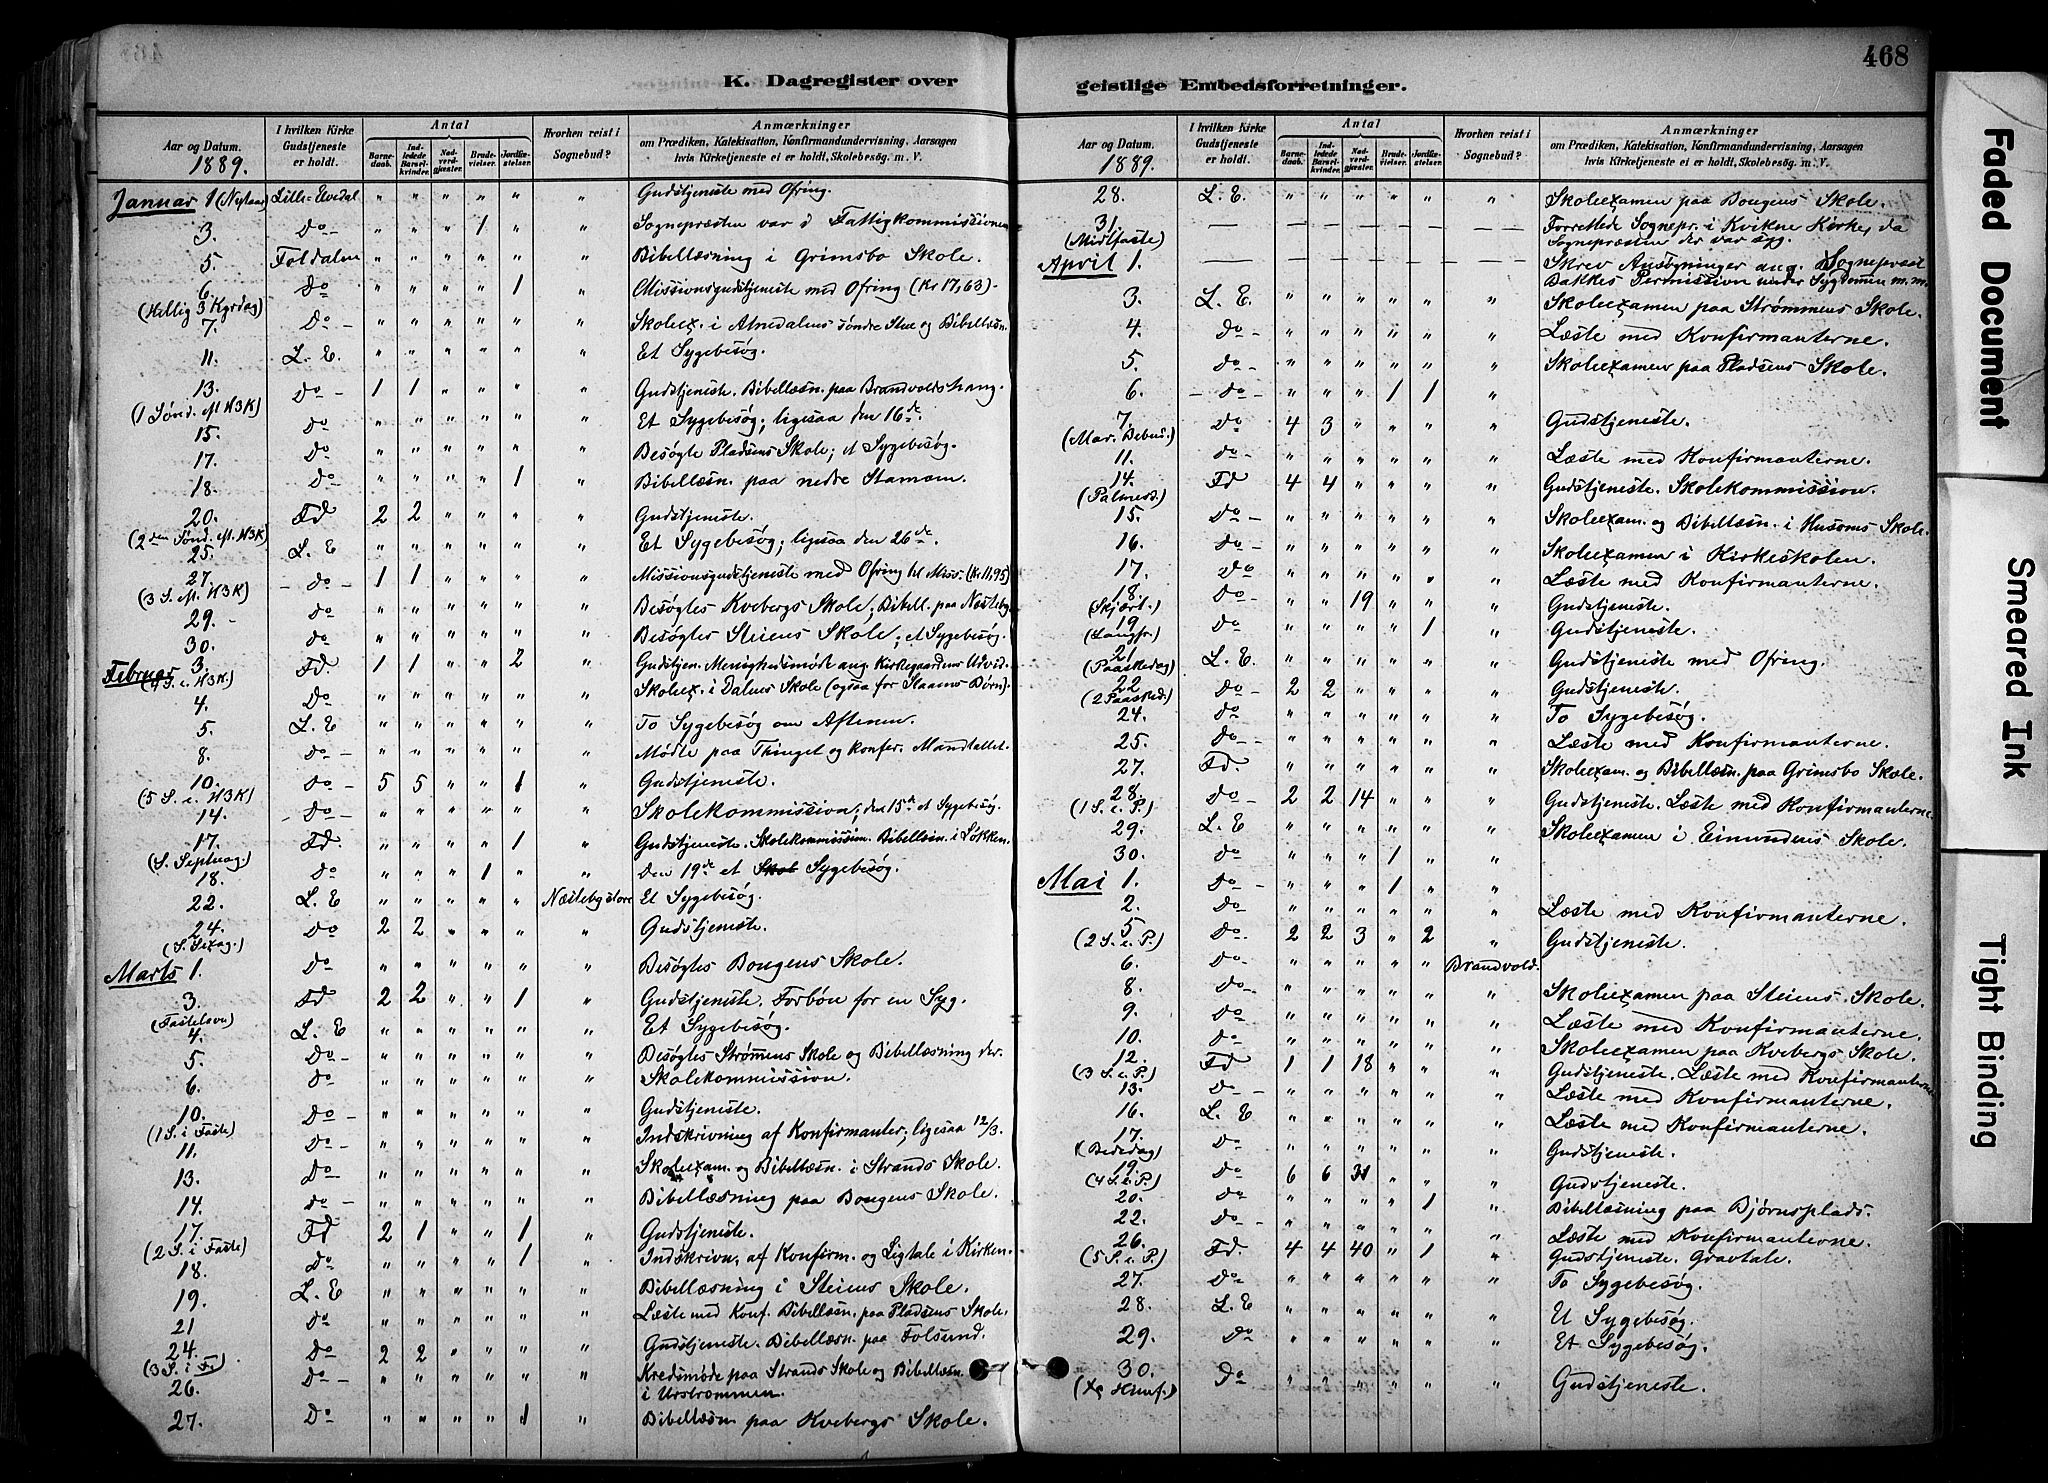 468
K. Dagregister over
Aar og Datum. 1889. I hvilken Kirke Gudstjeneste er holdt. Antal Barnedaab. Indledede Barselkvinder. Nadverdgjæster. Brudevielser. Jordfæstelser. Hvorhen reist i Sognebud? Anmærkninger om Prædiken, Katekisation, Konfirmandundervisning, Aarsagen hvis Kirketjeneste ei er holdt, Skolebesög. m. V.
Januar 1 (Nytaar) Lille-Elvedal " " " " " " Gudstjeneste med Ofring.
3. Do - " " " 1 " " Sognepræsten var i Fattigkommissionen
5. Foldalen " " " " " " Bibellæsning i Grimsbo Skole.
6 (Hellig 3 Kgrsdag) Do " " " " 1 " Missionsgudstjeneste med Ofring (Kr 17,63).
7. Do - " " " " " " Skoleex. i Atnedalens söndre Stue og Bibellæsn.
11. L. E. " " " " " " Et Sygebesög.
13. (1 Sönd. eft. H3K) Do - 1 1 " " " " Gudstjeneste. Bibellæsn. paa Brandvoldshaug.
15. Do " " " " " " Et Sygebesög; ligesaa den 16de.
17. Do " " " " " " Besögte Pladsens Skole; et Sygebesög.
18. Do " " " " 1 " Bibellæsn. paa nedre Stamom.
20. (2den Sönd. eft. H3K) Fd 2 2 " " " " Gudstjeneste.
25. L. E " " " " " " Et Sygebesög; ligesaa den 26de.
27. (3 S. eft. H3K) - do - 1 1 " " " " Missionsgudstjeneste med Ofring til Miss. (Kr 11,95)
29. Do " " " " " " Besögtes Kvebergs Skole; Bibell. paa Næsteby.
30. Do " " " " " " Besögtes Steiens Skole; et Sygebesög.
Februar 3. (4 S. e. H3K) Fd. 1 1 " " 2 " Gudstjen. Menighedsmödt ang. Kirkegaardens Udvid.
4. Do " " " " " " Skoleex. i Dalens Skole (ogsaa for Slaaens Börn).
5. L. E " " " " " " To Sygebesög om Aftenen.
8. Do - " " " " " " Mödte paa Thinget og konfer. Mandtallet.
10. (5 S. e. H3K) do - 5 5 " " 1 " Gudstjeneste.
14. - do - " " " " " " Skolekommission; den 15de et Sygebesög.
17. (S. Septuag) Fd. " " " " 1 " Gudstjeneste. Skolekommission. Bibellæsn. i Lökken.
18. Do " " " 1 " " Den 19de et Skol Sygebesög.
22. L. E " " " " " Næstebystore Et Sygebesög.
24. (S. Sexag.) Do 2 2 " " " " Gudstjeneste.
Marts 1. Do " " " " " " Besögtes Bougens Skole.
3. (Fastelavn) Fd 2 2 " " 1 " Gudstjeneste. Forbön for en Syg.
4. L. E " " " " " " Et Sygebesög.
5. Do - " " " " " " Besögtes Strömens Skole og Bibellæsning der.
6. Do " " " " " " Skolekommission.
10. (1 S. i Faste) Do - " " " " " " Gudstjeneste.
11. Do - " " " " " " Indskrivning af Konfirmanter; ligesaa 12/3.
13. Do - " " " " " " Skoleexam. og Bibellæsn. i Strands Skole.
14. do - " " " " " " Bibellæsning paa Bougens Skole.
17. (2 S. i Faste) Fd 2 1 " " 1 " Gudstjeneste.
18. Do " " " " 1 " Indskrivn. af Konfirm. og Ligtale i Kirken.
19. L. E " " " " " " Bibellæsning i Steiens Skole.
21 Do " " " " " " Læste med Konf. Bibellæsn. paa Pladsens Skole.
24. (3 S. i F.) Do 2 2 " " " " Gudstjeneste. Bibellæsn. paa Folsund.
26. Do - " " " " " " Kredsmöde paa Strands Skole og Bibellæsn.
i Urströmmen.
27. Do " " " " 1 " Bibellæsn. paa Kvebergs Skole.
geistlige Embedsforretninger.
Aar og Datum. 1889. I hvilken Kirke Gudstjeneste er holdt. Antal Barnedaab. Indledede Barselkvinder. Nadverdgjæster. Brudevielser. Jordfæstelser. Hvorhen reist i Sognebud? Anmærkninger om Prædiken, Katekisation, Konfirmandundervisning, Aarsagen hvis Kirketjeneste ei er holdt, Skolebesög. m. V.
28. L. E. " " " " " " Skoleexamen paa Bougens Skole.
31. (Midtfaste) — — — — — — — Forrettede Sognepr. i Kvikne Kirke, da
Sognepræsten der var syg.
April 1. — — — — — — — Skrev Ansögninger ang. Sognepræst
Bakkes Permission under Sygdommen m.m.
3. L. E. " " " " " " Skoleexamen paa Strömmens Skole.
4. do - " " " " " " Læste med Konfirmanterne.
5. do " " " " " " Skoleexamen paa Pladsens Skole.
6 - do - " " " 1 1 "
7. (Mar. Bebud.) Do 4 3 " " " " Gudstjeneste.
11. do - " " " " " " Læste med Konfirmanterne.
14. (Palmesd.) Fd 4 4 " " " " Gudstjeneste. Skolekommission.
15. Do - " " " " " " Skoleexam. og Bibellæsn. i Husoms Skole.
16. Do - " " " " " " Skoleexamen i Kirkeskolen.
17. Do " " " " " " Læste med Konfirmanterne.
18. (Skjært.) Do - " " 19 " " " Gudstjeneste.
19 (Langfr.) Do " " " " 1 " Gudstjeneste.
21 (Paaskedag) L. E. " " " " " " Gudstjeneste med Ofring.
22 (2 Paasked.) Do - 2 2 " " " " Gudstjeneste.
24. Do " " " " " " To Sygebesög.
25. Do - - " " " " " " Læste med Konfirmanterne.
27. Fd. " " " " " " Skoleexam. og Bibellæsn. paa Grimsbo Skole.
28. (1 S. e. P.) Do - 2 2 14 " " " Gudstjeneste. Læste med Konfirmanterne.
29. L. E " " " " " " Skoleexamen i Eimundens Skole.
30. Do " " " 1 " "
Mai 1. Do - " " " 1 " "
2. Do " " " " " " Læste med Konfirmanterne.
5 (2 S. e. P.) Do. 2 2 3 " 2 " Gudstjeneste.
6. Do - " " " " " Brandvold.
8. Do - " " " " " " Skoleexamen paa Steiens Skole.
9. Do " " " " " " Læste med Konfirmanterne.
10. Do " " " " " " Skoleexamen paa Kvebergs Skole.
12. (3 S. e. P.) Fd 1 1 18 " " " Gudstjeneste. Læste med Konfirmanterne
13. Do - " " " " " " Læste med Konfirmanterne.
16. L. E " " " " " " Læste med Konfirmanterne.
17. (Bededag) Do " " " " " " Gudstjeneste.
19. (4 S. e. P.) Do 6 6 31 " " " Gudstjeneste.
20. Do " " " " 1 " Bibellæsning paa Björnsplads.
22. Do - " " " " " " Læste med Konfirmanterne.
26. (5 S. e. P.) Fd. 4 4 40 " 1 " Gudstjeneste. Gravtale.
27. Do " " " " " " To Sygebesög.
28. L. E " " " " " " Et Sygebesög.
29. Do " " " " " " Et Sygebesög.
30. Do " " " " " " Gudstjeneste.
Faded Document
Smeared Ink
Tight Binding